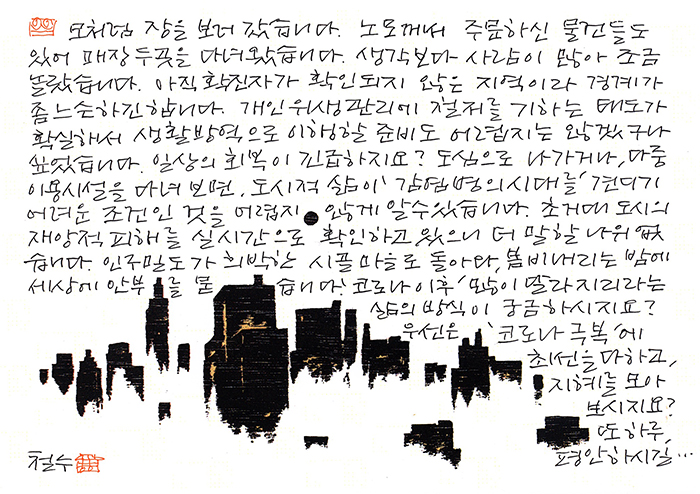 모처럼 장을 보러 갔습니다. 노모께서 주문하신 물건들도
있어 매장 두곳을 다녀왔습니다. 생각보다 사람이 많아 조금
놀랐습니다. 아직 확진자가 확인되지 않은 지역이라 경계가
좀 느슨하긴 합니다. 개인위생관리에 철저를 기하는 태도가
확실해서 생활방역으로 이행할 준비도 어렵지는 않겠구나
싶었습니다. 일상의 회복이 긴급하지요? 도심으로 나가거나, 다중
이용시설을 다녀보면, 도시적 삶이 '감염병의 시대를' 견디기
어려운 조건인 것을 어렵지 않게 알수있습니다. 초거대 도시의
재앙적 피해를 실시간으로 확인하고 있으니 더 말할 나위 없
습니다. 인구밀도가 희박한 시골마을로 돌아와, 봄비내리는 밤에
세상에 안부를 묻습니다. '코로나 이후' 많이 달라지리라는
삶의 방식이 궁금하시지요?
우선은 '코로나 극복'에
최선을 다하고,
지혜를 모아
보시지요?
또 하루,
평안하시길…
철수